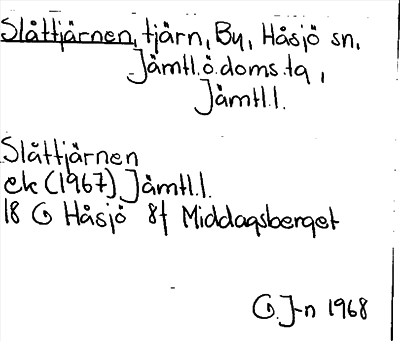 Slåttjärnen, tjärn, By, Håsjö sn,
Jämtl.ö.doms.tg,
Jämtl.l.
Slåttjärnen
ek (1967) Jämtl.l.
18 G Håsjö 8f Middagsberget
G.J-n 1968